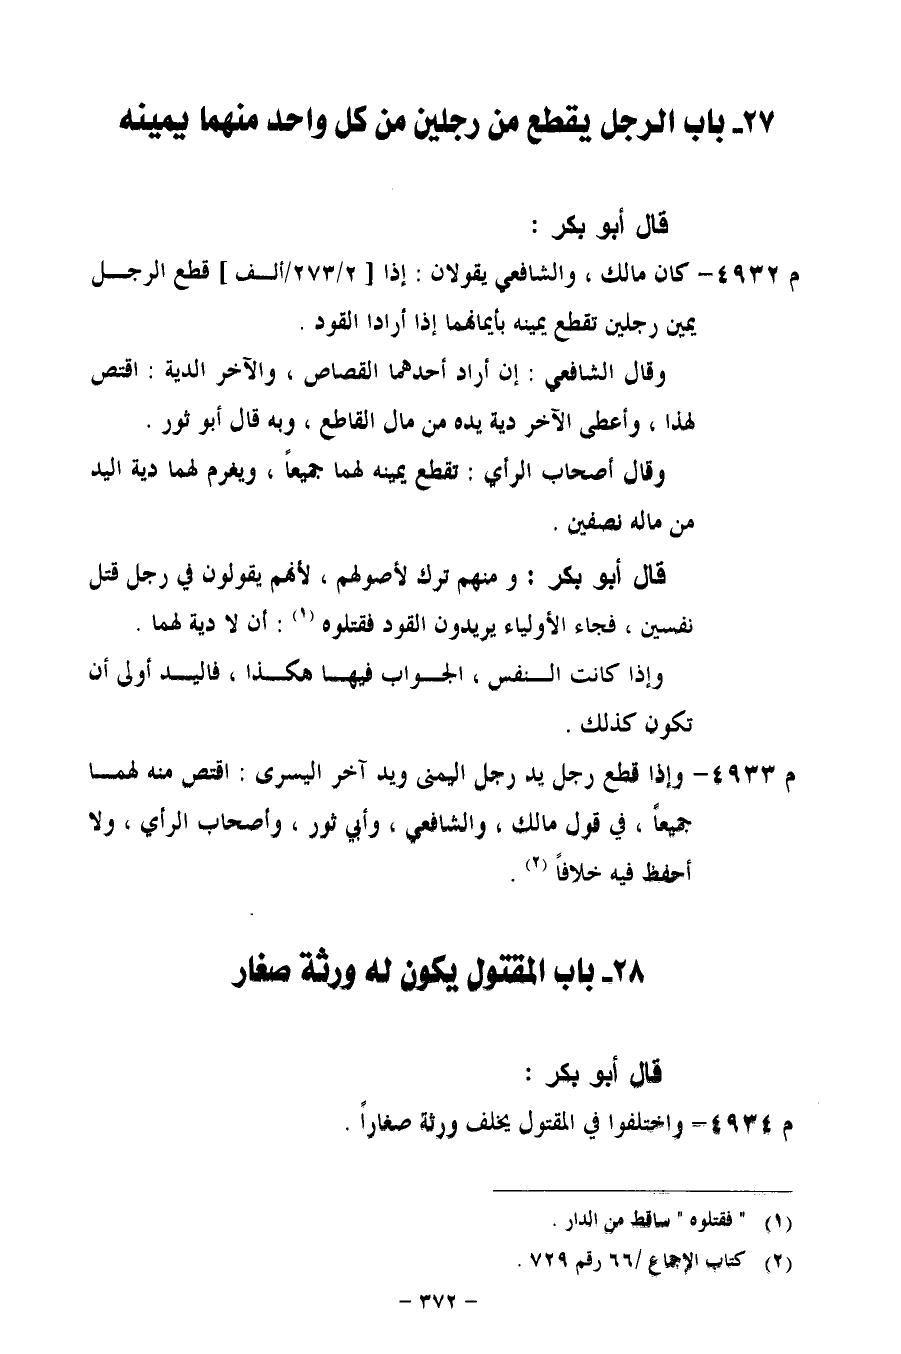 ٢٧ـ باب الرجل يقطع من رجلين من كل واحد منهما يمينه
قال أبو بكر :
م ٤٩٣٢– كان مالك ، والشافعي يقولان : إذا [ ٢/٢٧٣/ألـف ] قطع الرجـل
يمين رجلين تقطع يمينه بأيمانهما إذا أرادا القود .
وقال الشافعي : إن أراد أحدهما القصاص ، والآخر الدية : اقتص
لهذا ، وأعطى الآخر دية يده من مال القاطع ، وبه قال أبو ثور .
وقال أصحاب الرأي : تقطع يمينه لهما جميعاً ، ويغرم لهما دية اليد
من ماله نصفين .
قال أبو بكر : و منهم ترك لأصولهم ، لأنهم يقولون في رجل قتل
نفسين ، فجاء الأولياء يريدون القود فقتلوه (١) : أن لا دية لهما .
وإذا كانت النفس ، الجواب فيها هكذا ، فاليد أولى أن
تكون كذلك .
م ٤٩٣٣– وإذا قطع رجل يد رجل اليمنى ويد آخر اليسرى : اقتص منه لهما
جميعاً ، في قول مالك ، والشافعي ، وأبي ثور ، وأصحاب الرأي ، ولا
أحفظ فيه خلافاً (٢) .
٢٨ـ باب المقتول يكون له ورثة صغار
قال أبو بكر :
م ٤٩٣٤– واختلفوا في المقتول يخلف ورثة صغاراً .
(١) " فقتلوه " ساقط من الدار .
(٢) كتاب الإجماع /٦٦ رقم ٧٢٩ .
– ٣٧٢ –